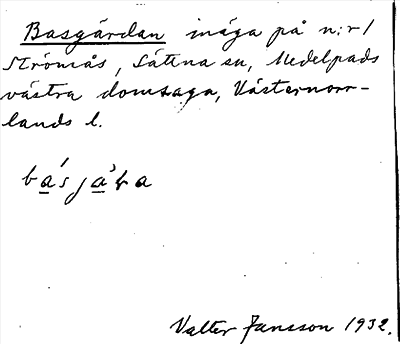 Basgårdan inäga på n:r 1
Strömås, Sättna sn, Medelpads
västra domsaga, Västernorr-
lands l.
Valter Jansson 1932.